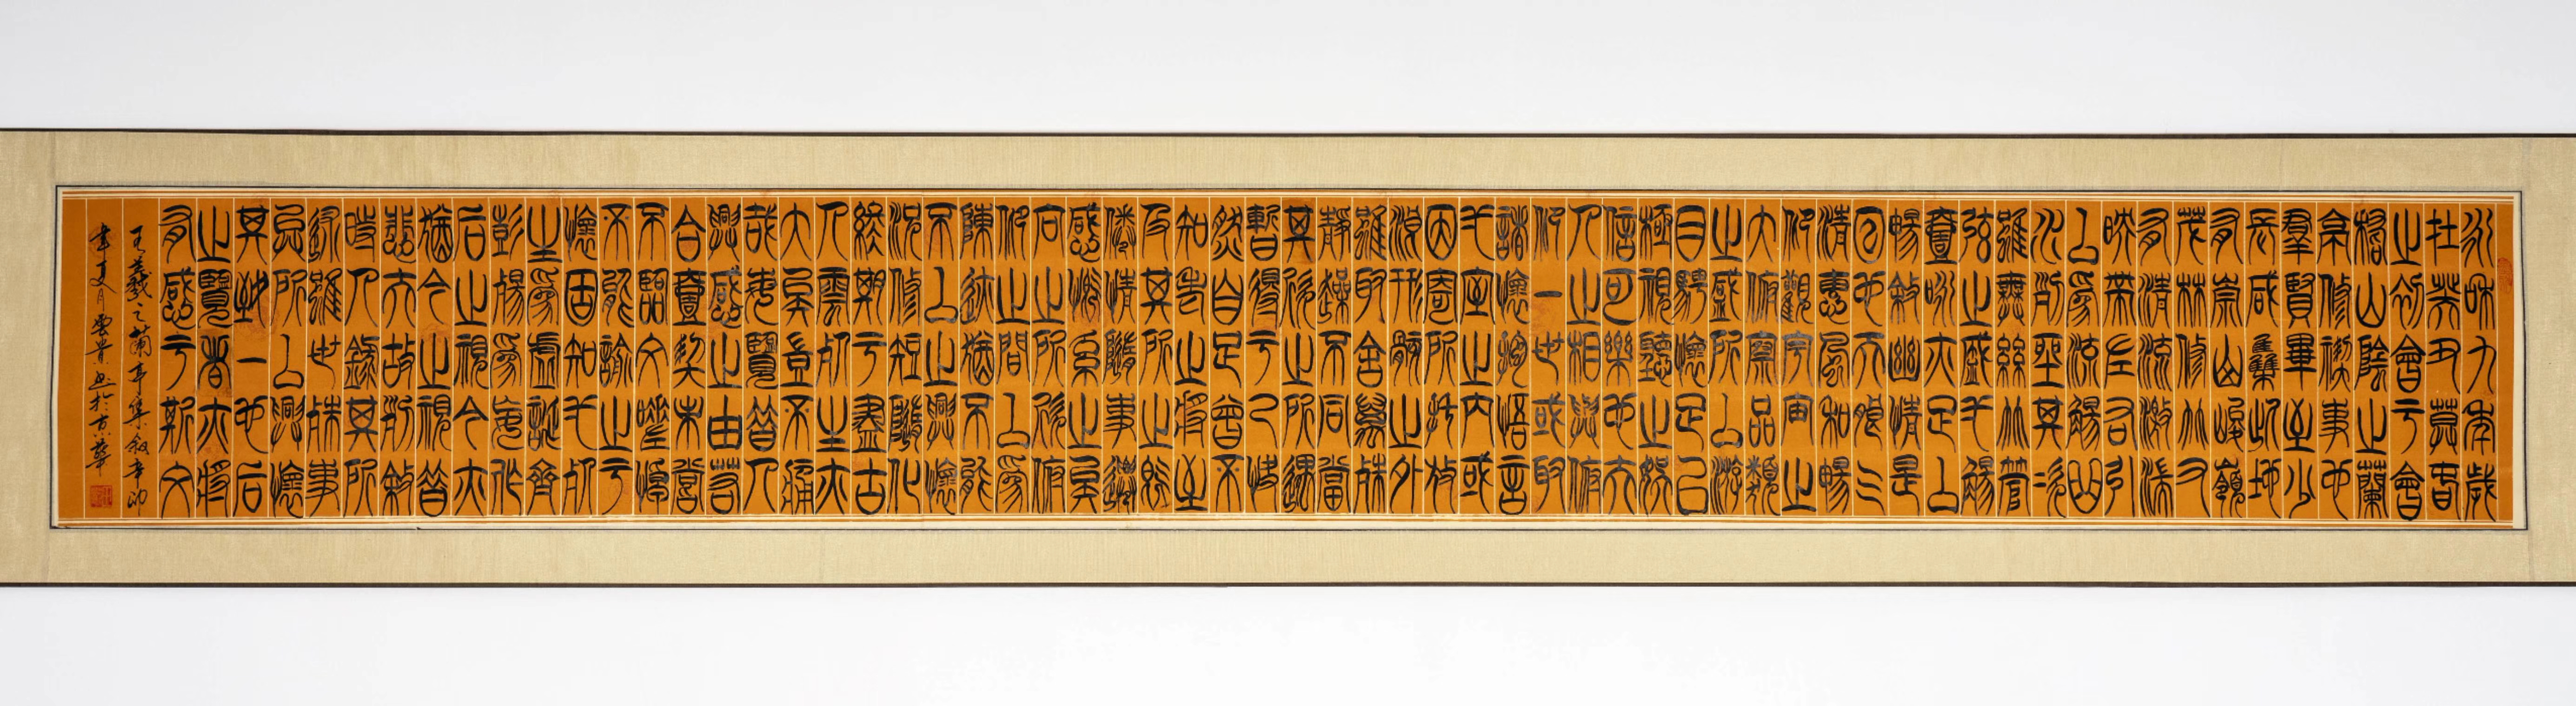 永和九年歲
在癸丑莫春
之初會于會
稽山陰之蘭
亭修禊事也
羣賢畢至少
長咸集此地
有崇山峻嶺
茂林修竹又
有清流激湍
映帶左右引
以為流觴曲
水列坐其次
雖無絲竹管
弦之盛弌觴
壹詠亦足以
暢敘幽情是
日也天朗气
清惠風和暢
仰觀宇宙之
大俯察品類
之盛所以遊
目騁懷足以
極視聽之娛
信可樂也夫
人之相與俯
仰一世或取
諸懷抱悟言
弌室之內或
因寄所託放
浪形骸之外
雖取舍萬殊
靜躁不同當
其欣之所遇
暫得于己快
然自足曾不
知老之將至
及其所之既
倦情隨事遷
感慨系之矣
向之所欣俯
仰之間以為
陳迹猶不能
不以之興懷
況修短隨化
終期于盡古
人雲死生亦
大矣豈不痛
哉每覽昔人
興感之由若
合壹契未嘗
不臨文嗟悼
不能喻之于
懷固知弌死
生為虛誕齊
彭殤為妄作
后之視今亦
猶今之視昔
悲夫故列敘
時人錄其所
述雖世殊事
異所以興懷
其致一也后
之覽者亦將
有感于斯文
王羲之蘭亭集敘辛卯
年夏月雲貴書於京華